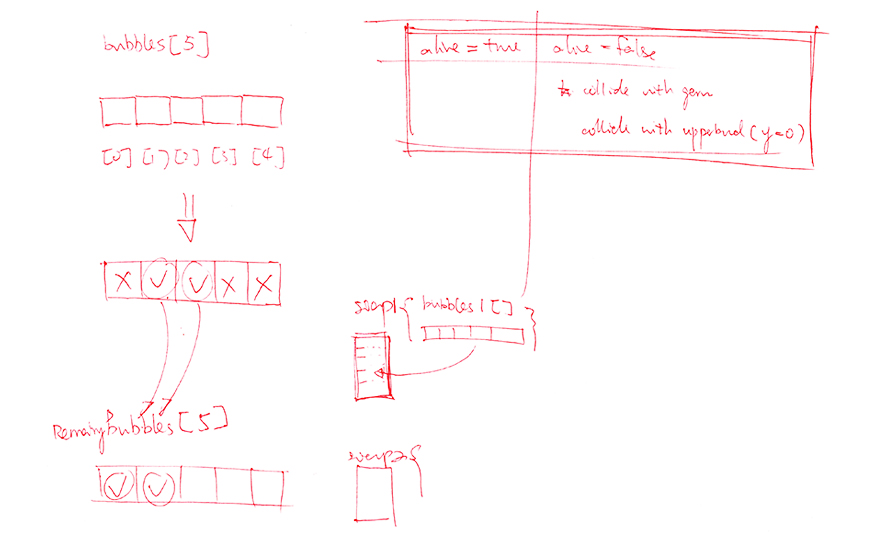 bubbles[5]
[0] [1] [2] [3] [4]
X ✓ ✓ X X
RemainyBubbles[5]
✓ ✓
alive = true
alive = false
collide with germ
collide with upperbund (y=0)
soap1{ bubbles1[] }
soap2{